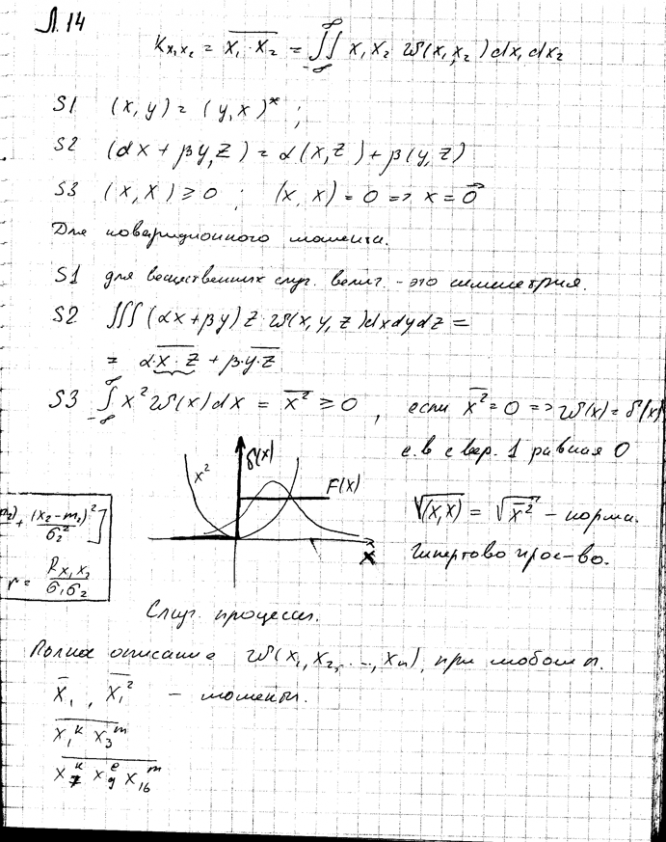 Л.14
K_{x₁x₂} = \overline{x₁·x₂} = ∫∫_{-∞}^{∞} x₁x₂ w(x₁,x₂)dx₁dx₂
S1 (x,y) = (y,x)* ;
S2 (αx + βy, z) = α(x,z) + β(y,z)
S3 (x,x) ≥ 0 ; (x,x) = 0 => x = \vec{0}
Для ковариционного момента.
S1 для вещественных случ. велич. - это симметрия.
S2 ∫∫∫ (αx+βy) z·w(x,y,z)dxdydz =
= α·\overline{x·z} + β·\overline{y·z}
S3 ∫_{-∞}^{∞} x² w(x)dx = \overline{x²} ≥ 0, если \overline{x²} = 0 => w(x) = δ(x)
с.в с вер. 1 равная 0
x² δ(x) F(x) x
√(x,x) = √\overline{x²} - норма.
Гильбертово прос-во.
m₂) + (x₂-m₂)²/σ₂² ]
r = R_{x₁x₂}/σ₁σ₂
Случ. процессы.
Полное описание w(x₁, x₂, ..., xₙ), при любом n.
\overline{x₁}, \overline{x₁²} - моменты.
\overline{x₁^k x₃^m}
\overline{x₇^k x₉^e x₁₆^m}